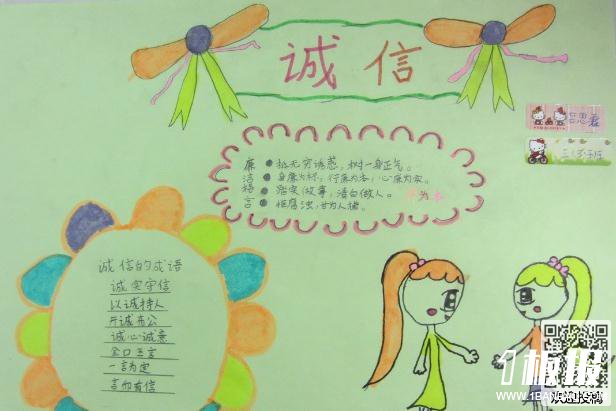 诚信
廉洁格言
●抵无穷诱惑,树一身正气。
●身廉为材,行廉为本,心廉为家。
●踏实做事,清白做人。
●拒腐浊,甘为人梯。
诚信的成语
诚实守信
以诚持人
开诚布公
诚心诚意
金口玉言
一言为定
言而有信
1板报
WWW.1BANBAO.COM
欢迎投稿